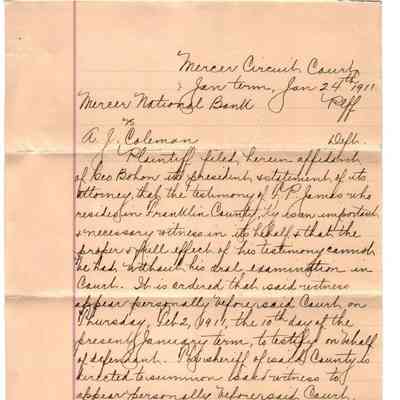 Mercer Circuit Court,
Jan term, Jan 24th 1911
Mercer National Bank Plff
vs
A. J. Coleman Deft.
Plaintiff filed, herein affidavit
of Geo Bohon its president & statement of its
attorney, that the testimony of P. James who
resides in Franklin County, Ky is an important
& necessary witness in its behalf & that the
proper & full effect of his testimony cannot
be had without his oral examination in
Court. It is ordered that said witness
appear personally before said Court on
Thursday, Feb 2, 1911, the 10th day of the
present January term, to testify on behalf
of defendant. The sheriff of said County is
directed to summon said witness to
appear personally before said Court